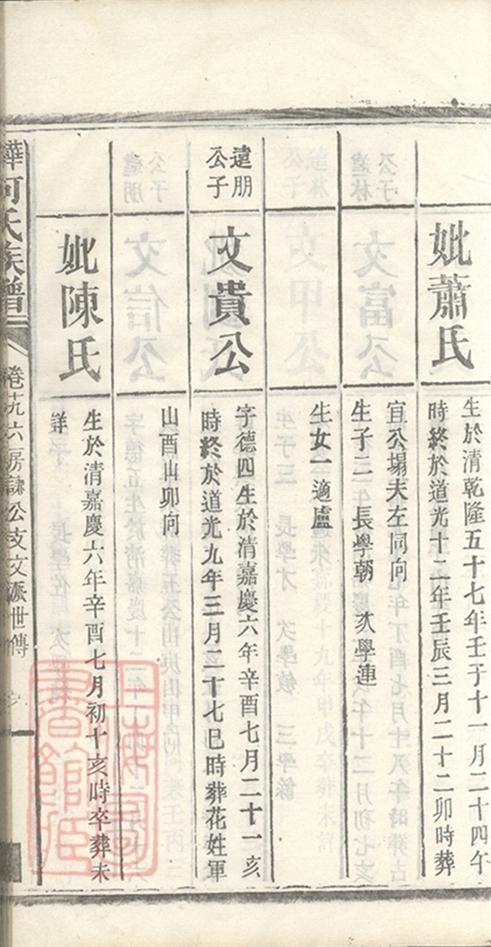 妣蕭氏
生於清乾隆五十七年壬子十一月二十四午
時終於道光十二年壬辰三月二十二卯時葬
宜公塌夫左同向
生子二 長學朝 次學連
生女一適盧
達朋
公子
文貴公
字德四生於清嘉慶六年辛酉七月二十一亥
時終於道光九年三月二十七巳時葬花姓軍
山酉山卯向
妣陳氏
生於清嘉慶六年辛酉七月初十亥時卒葬未
詳
何氏族譜
卷十九六房諫公支文派世傳